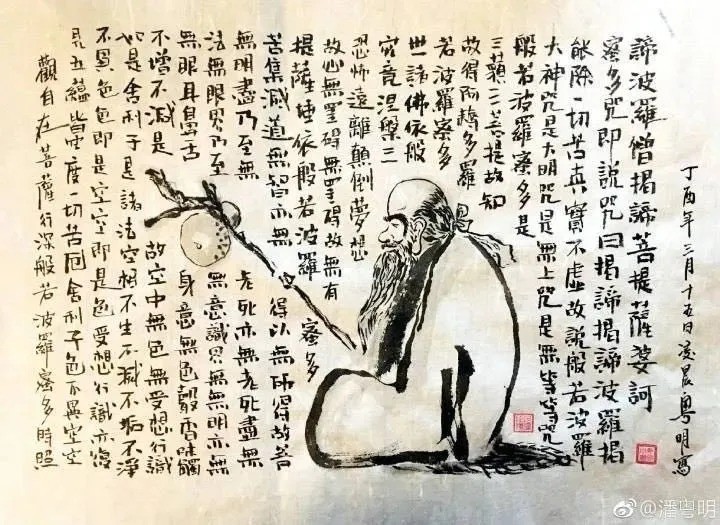 觀自在菩薩行深般若波羅蜜多時照
見五蘊皆空度一切苦厄舍利子色不異空空
不異色色即是空空即是色受想行識亦復
如是舍利子是諸法空相不生不滅不垢不淨
不增不減是故空中無色無受想行識
無眼耳鼻舌身意無色聲香味觸
法無眼界乃至無意識界無無明亦無
無明盡乃至無老死亦無老死盡無
苦集滅道無智亦無得以無所得故菩
提薩埵依般若波羅蜜多
故心無罣碍無罣碍故無有
恐怖遠離顛倒夢想
究竟涅槃三
世諸佛依般
若波羅蜜多
故得阿耨多羅
三藐三菩提故知
般若波羅蜜多是
大神咒是大明咒是無上咒是無等等咒
能除一切苦真實不虛故説般若波羅
蜜多咒即説咒曰揭諦揭諦波羅揭
諦波羅僧揭諦菩提薩婆訶
丁酉年三月十五日凌晨粵明寫
@潘粤明